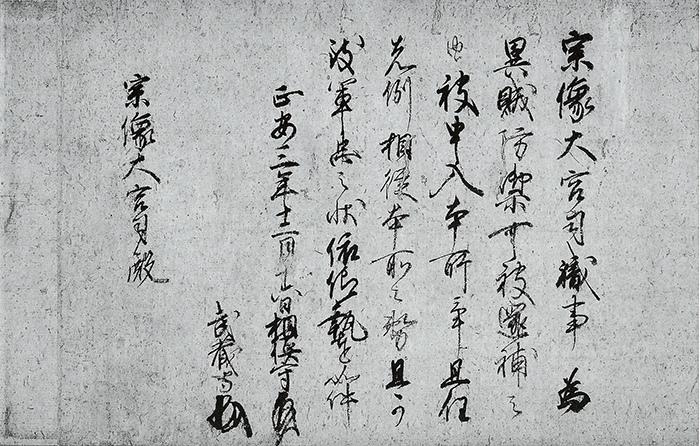 宗像大宮司職事為
異賊防禦可被還補之
由被申入本所畢且任
先例相従本所之所勘且可
致軍忠之状依仰執達如件
正安三年十二月十六日相模守
武蔵守
宗像大宮司殿